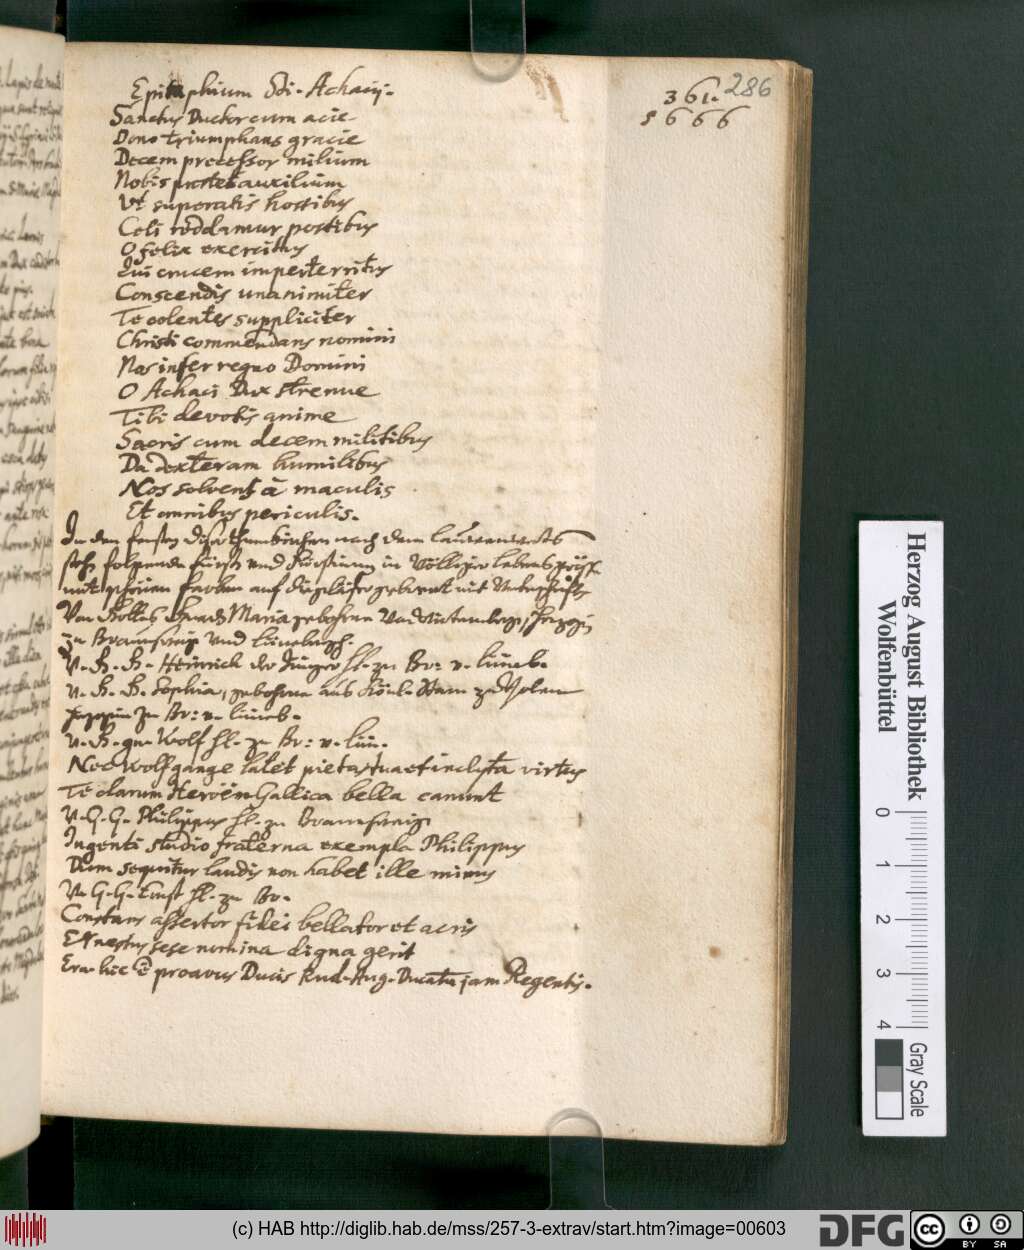 286
361.
5666
Epitaphium Sti. Achacij.
Sanctus Ductor cum acie
Dono triumphans gracie
Decem precessor milium
Nobis prestet auxilium
Vt superatis hostibus
Celi reddamur postibus
O felix exercitus
Qui crucem imperterritus
Conscendis unanimiter
Te colentes suppliciter
Christi commendans nomini
Nos infer regno Domini
O Achaci Dux strenue
Tibi devotis anime
Sacris cum decem militibus
Da dexteram humilibus
Nos solvens â maculis
Et omnibus periculis.
In den fenstern dieser Thumkirchen nach dem
folgende Fürsten und Fürstinnen in völliger Lebens
mit schönen farben auf die gläser gebrent mit Unterschrifft
Von Gottes Gnad Maria gebohrne von Wirtemberg, Herzogin
zu Braunschweig und Lüneburgh.
V. G. G. Heinrich der Jünger H. zu Br: v. Lüneb.
V. G. G. Sophia, gebohrne aus Könl. Stam zu Polen
Herzogin zu Br: v. Lüneb.
V. G. gn. Wolf H. zu Br: v. Lün.
Nec Wolfgange latet pietas tua et inclyta virtus
Te clarum Heroen Gallica bella canunt
V. G. G. Philippus H. zu Braunschweig
Ingenti studio fraterna exempla Philippus
Dum sequitur laudis non habet ille minus
V. G. G. Ernst H. zu Br.
Constans assertor fidei bellator et acris
Ernestus sese nomina digna gerit
Erat hic proavus Ducis Rud. Aug. Ducatu jam Regentis.
Herzog August Bibliothek
Wolfenbüttel
0 1 2 3 4
Gray Scale
(c) HAB http://diglib.hab.de/mss/257-3-extrav/start.htm?image=00603
DFG
cc BY SA